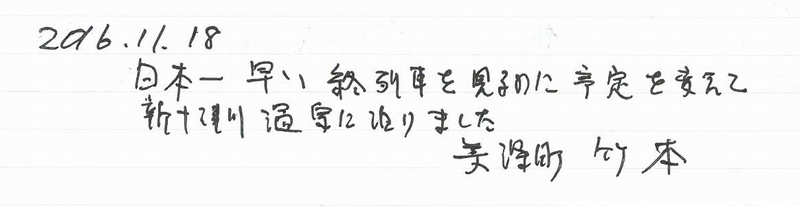 2016.11.18
日本一早い終列車を見るのに予定を変えて
新十津川温泉に泊りました
美深町 竹本